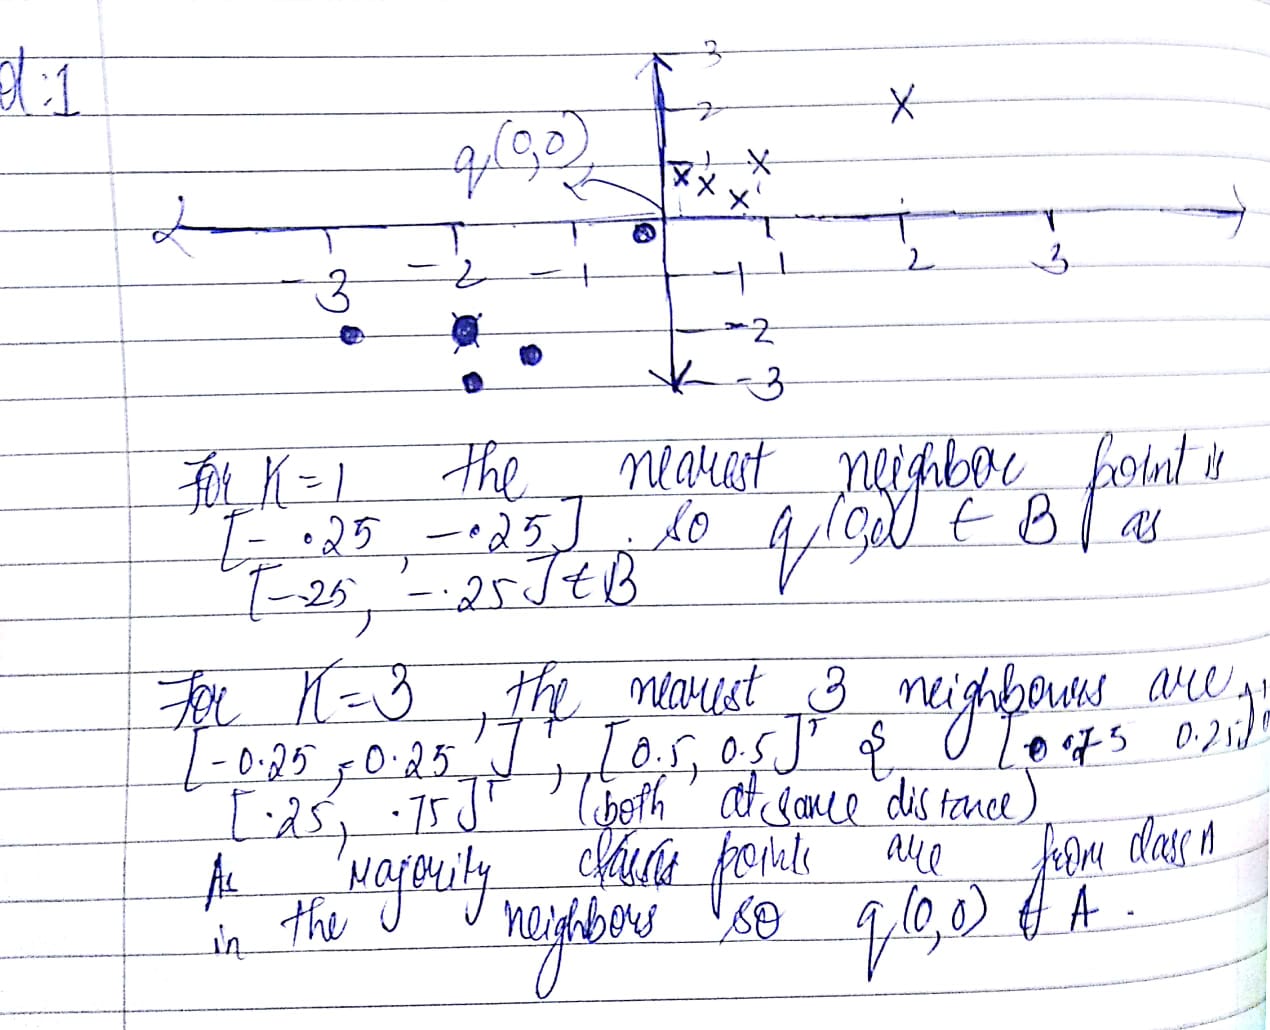 d:1
3
2
X
q(0,0)
X X X X
1
-3 -2 -1 -1 1 2 3
-2
-3
For K=1 the nearest neighbor point is
[-.25, -.25]. so q(0,0) ∈ B as
[-.25, -.25] ∈ B
For K=3, the nearest 3 neighbours are,
[-0.25, -0.25]ᵀ, [0.5, 0.5]ᵀ & [0.75 0.25]
[.25, .75]ᵀ (both at same distance)
As majority points are from class A
in the neighbors so q(0,0) ∈ A.